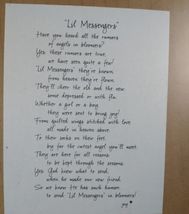 "Lil Messengers"
Have you heard all the rumors
of angels in bloomers?
Yes these rumors are true,
we have seen quite a few!
"Lil Messengers" they're known
from heaven they've flown.
They'll cheer the old and the new
some depressed or with flu.
Whether a girl or a boy
they were sent to bring joy!
From quilted wings stitched with love
all made in heaven above.
To their socks on their feet
by far the cutest angel you'll meet.
They are here for all reasons
to be kept through the seasons
Yes God knew what to send,
when he made our new friend.
So we know He has such humor
to send "Lil Messengers" in bloomers!